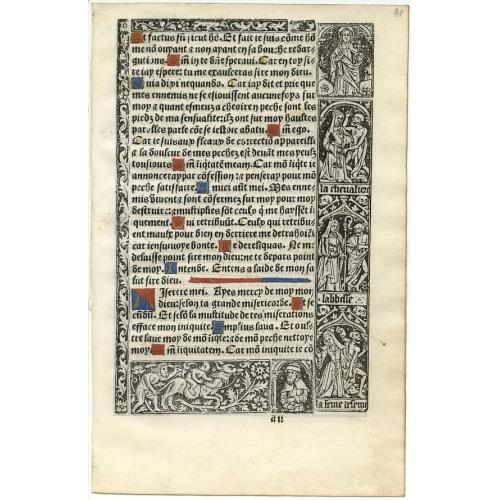 Et factus sū sicut hō. Et fait ie suis cōme hō
me nō ouyant ⁊ non ayant en sa bouche redar-
gutions. Qm̄ in te dn̄e speraui. Car en toy si-
re iay espere: tu me exauseras sire mon dieu.
Quia dixi nequando. Car iay dit et prie que
mes ennemis ne se esiouissent aucunefoys sur
moy ⁊ quant esmeuz a cheoir en peche sont les
piedz de ma sensualite ilz ont sur moy haultes
parolles parle cōe se iestoie abatu. Qm̄ ego.
Car ie suis au fleau de correctiō appareille
⁊ la douleur de mes pechez est deuāt mes yeulx
tousiours. Qm̄ iīqtatē meam. Car mō iīqte ie
annonceray par cōfession: ⁊ penseray pour mō
peche satisfaire. Inimici aūt mei. Mes enne-
mis viuent ⁊ sont cōfermez sur moy pour moy
destruire: ⁊ multiplies sōt ceulx q̄ me hayssēt ī-
iquement. Qui retribuūt. Ceulx qui retribu-
ent mault pour bien en derriere me detrahoiēt
car iensuiuoye bonte. Ne derelinquas. Ne me
delaisse point sire mon dieu: ne te depars point
de moy. Intende. Entens a laide de mon sa
lut sire dieu.
Miserere mei. Ayes mercy de moy mon
dieu: selon ta grande misericorde. Et se
cūdū. Et selō la multitude de tes miserations
efface mon iniquite. Amplius laua. Et oul-
tre laue moy de mō iīqte: ⁊ de mō peche nettoye
moy. Qm̄ iniquitatem. Car mō iniquite ie cō
a ii
la cheualiere
labbesse
la feme descuier
91